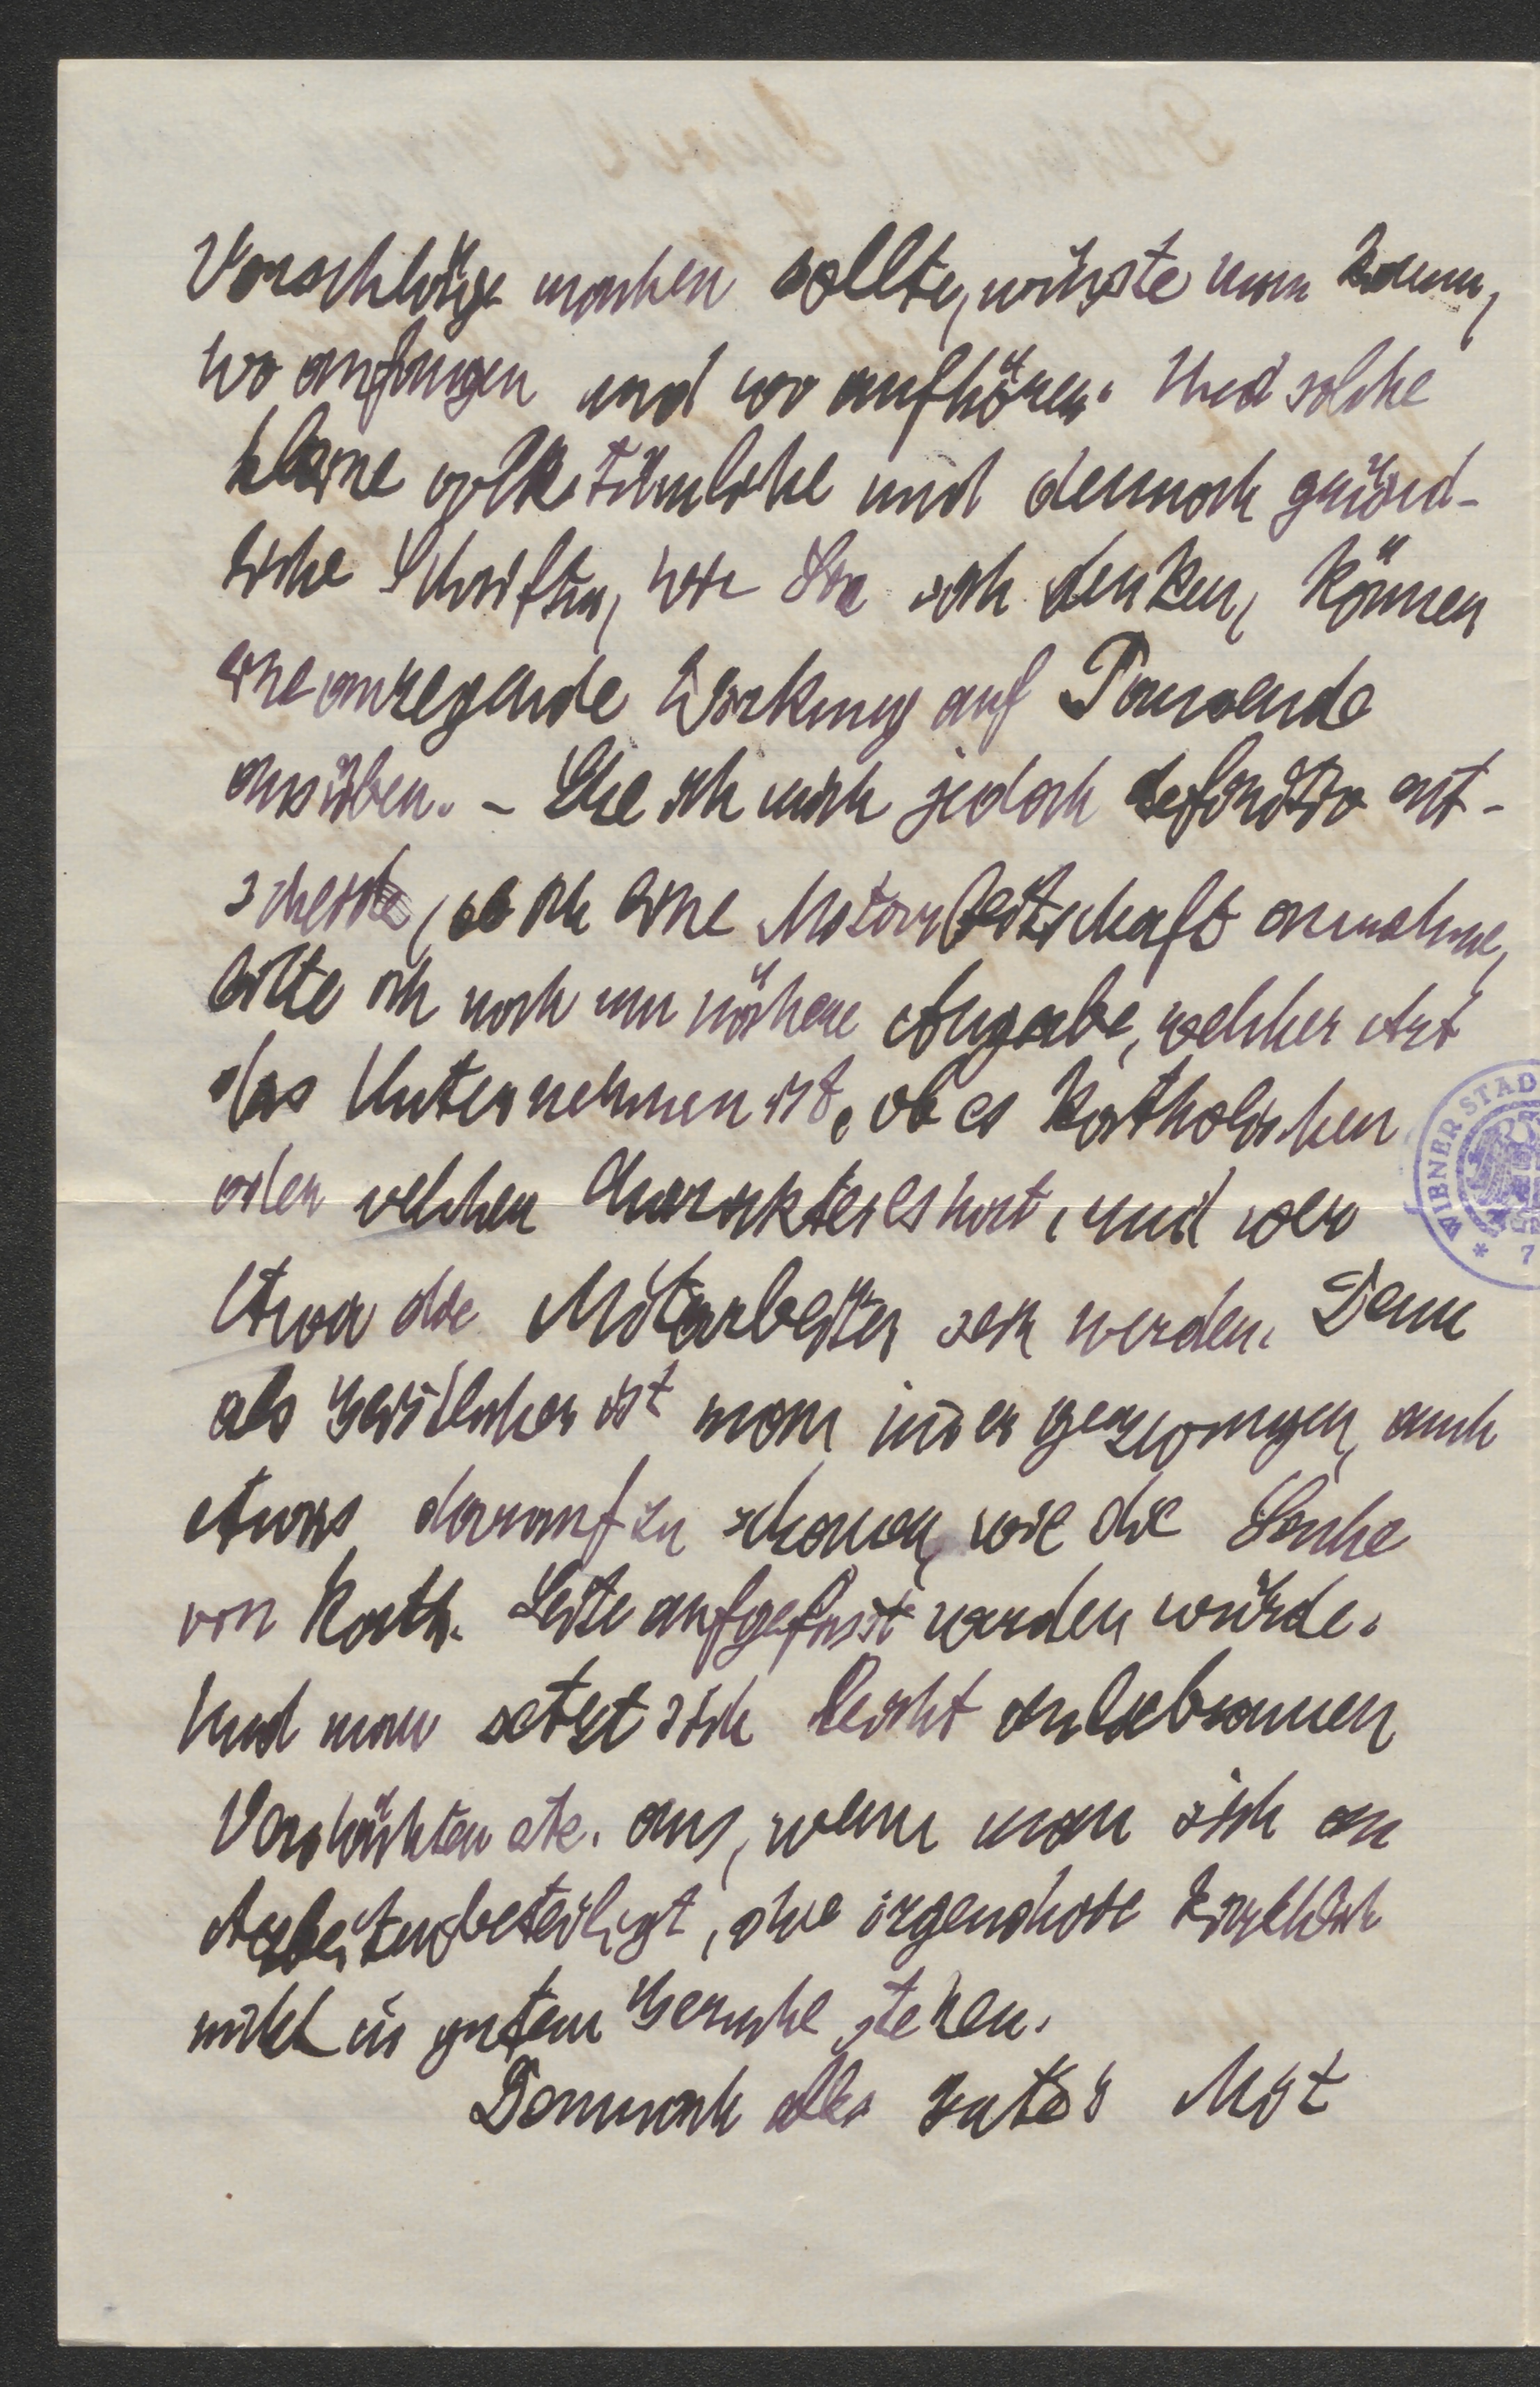 Vorschläge machen sollte, wüsste man kaum,
wo anfangen und wo aufhören. Und solche
kleine volkstümliche und dennoch gründ-
liche Schriften, wie Sie sich denken, können
eine anregende Wirkung auf Tausende
ausüben. – Ehe ich mich jedoch definitiv ent-
scheide, ob ich eine Mitarbeitschaft annehme,
bitte ich noch um nähere Angabe, welcher Art
das Unternehmen ist, ob es katholischen
oder welchen Charakter es hat, und wer
etwa die Mitarbeiter sein werden. Denn
als Geistlicher ist man immer gezwungen, auch
etwas darauf zu schauen, wie die Sache
von kath. Seite aufgefasst werden würde.
Und man setzt sich leicht unliebsamen
Verdächten etc. aus, wenn man sich an
Arbeiten beteiligt, die irgendwie kirchlich
nicht in gutem Geruche stehen.
Demnach alles Gute! Mit
WIENER STAD
* 7